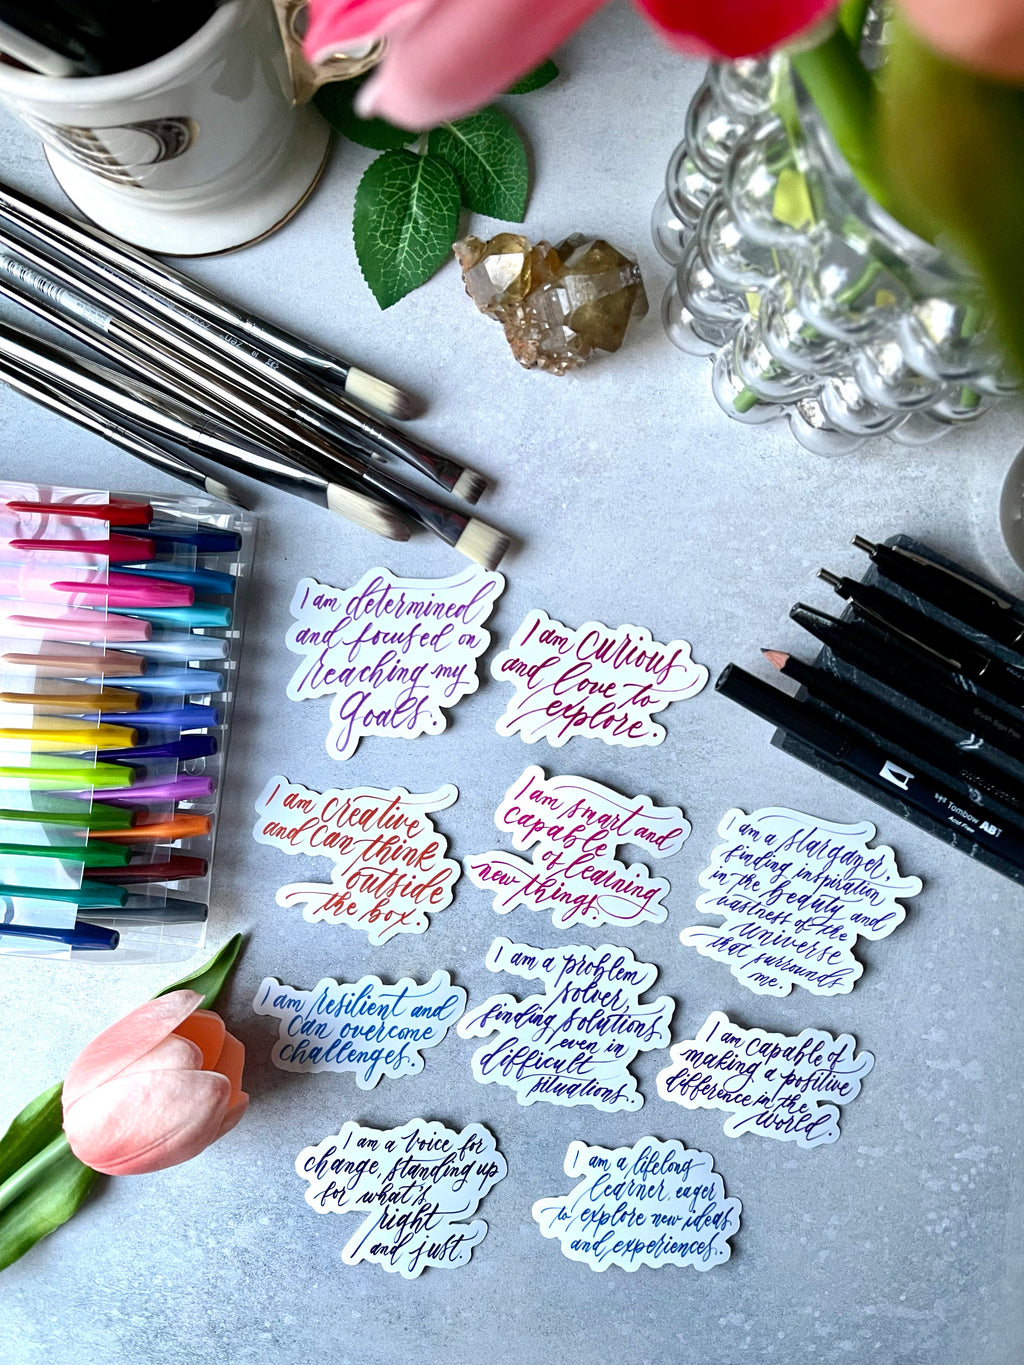 I am determined
and focused on
reaching my
goals.
I am curious
and love to
explore.
I am creative
and can think
outside
the box.
I am smart and
capable
of learning
new things.
I am a stargazer,
finding inspiration
in the beauty and
vastness of the
universe
that surrounds
me.
I am resilient and
can overcome
challenges.
I am a problem
solver,
finding solutions
even in
difficult
situations.
I am capable of
making a positive
difference in the
world.
I am a voice for
change, standing up
for what's
right
and just.
I am a lifelong
learner, eager
to explore new ideas
and experiences.
Brush Sign Pen
Tombow ABT
Acid Free